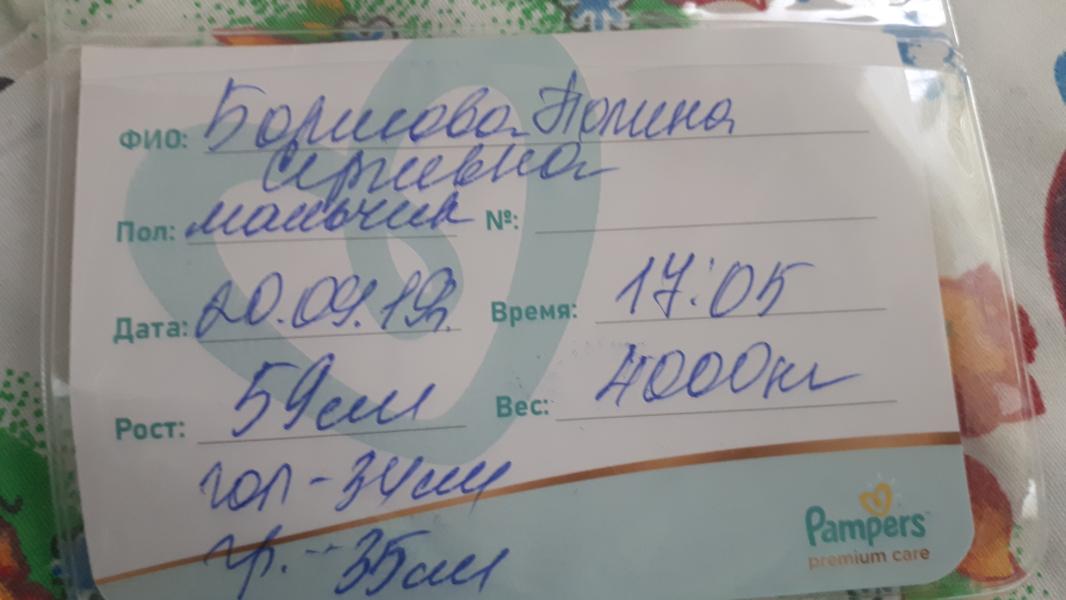 ФИО: Борисова Полина
Сергиевна
Пол: мальчик №:
Дата: 20.09.19г. Время: 17:05
Рост: 59см Вес: 4000кг
гол - 34см
гр. - 35см
Pampers
premium care